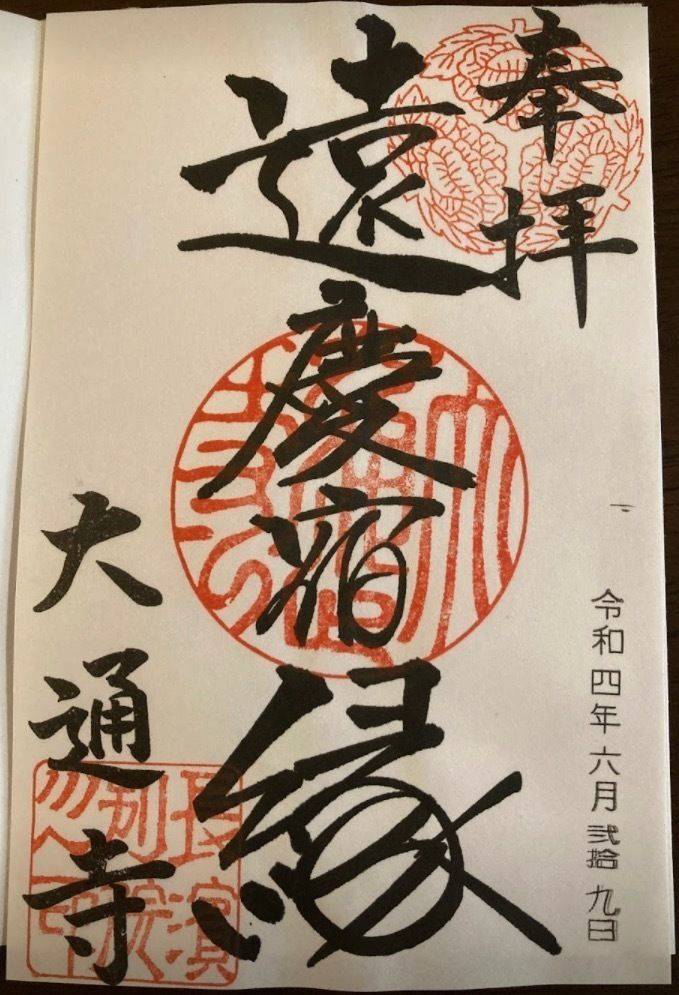 奉拝
遠慶宿縁
大通寺
令和四年六月弐拾九日
長濱
別院